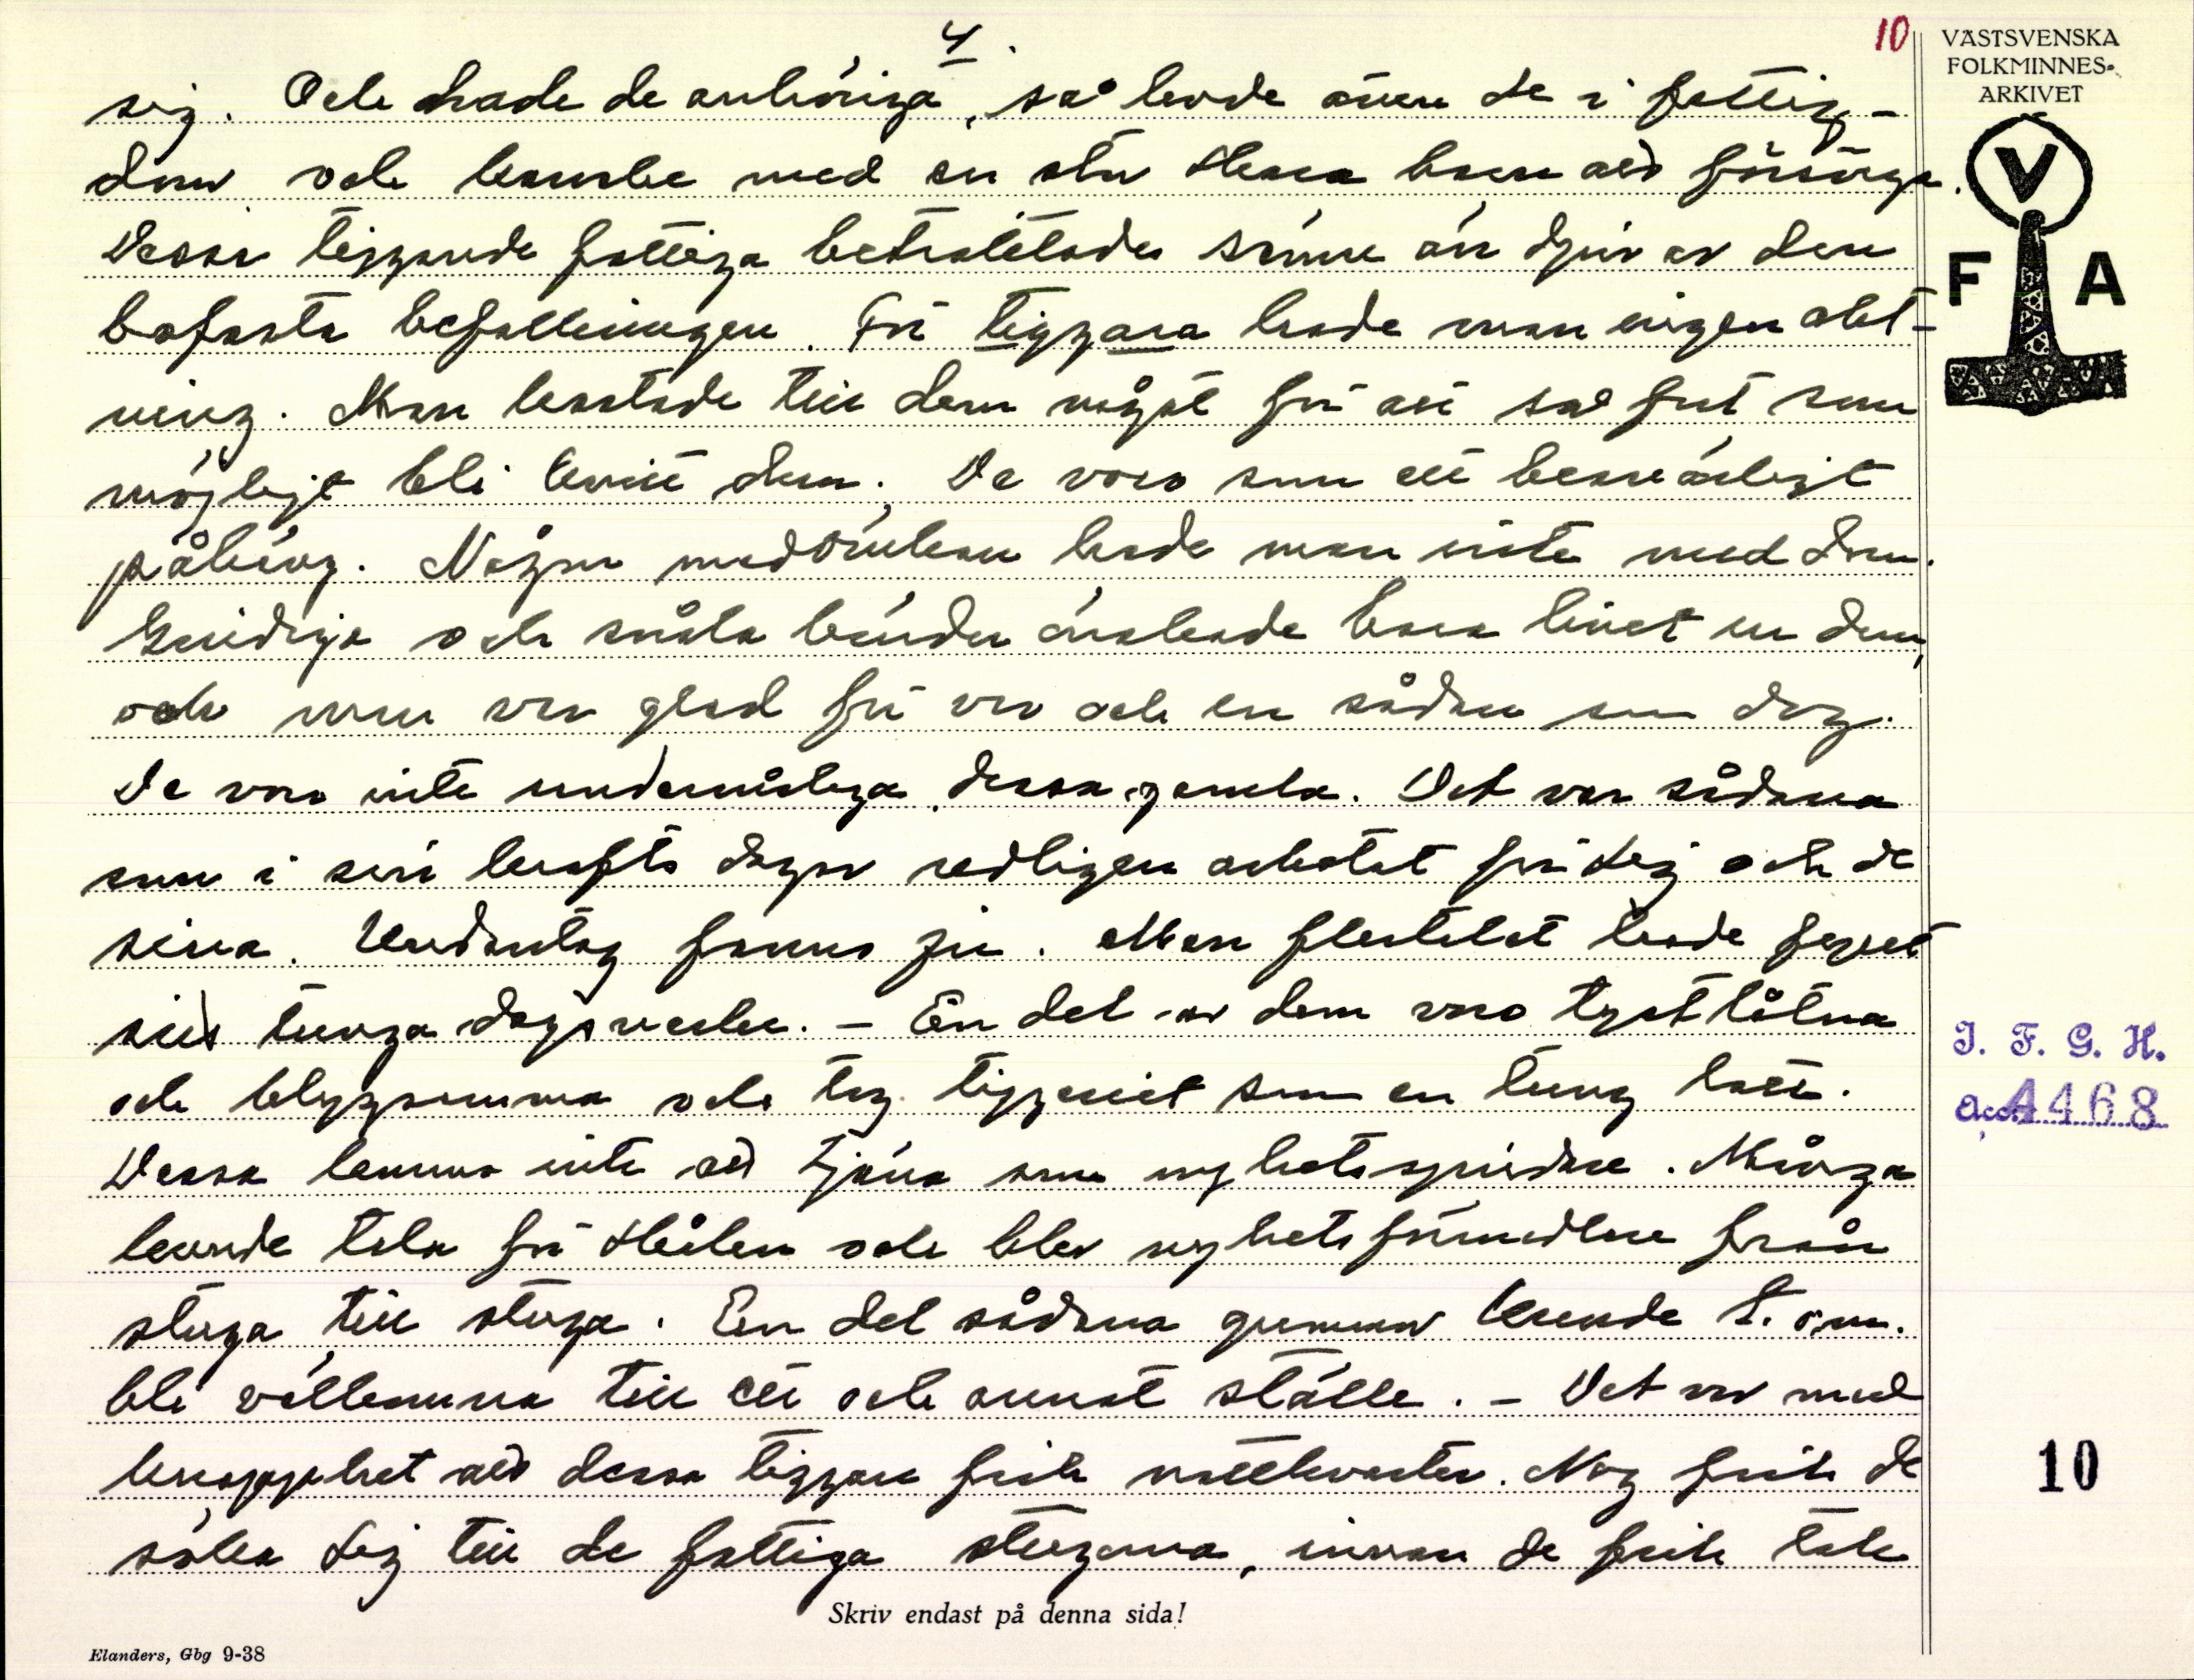 4.
10
VÄSTSVENSKA
FOLKMINNES-
ARKIVET
V
F A
sig. Och hade de anhöriga, så levde även de i fattig-
dom och kanske med en stor skara barn att försörja.
Dessa tiggande fattiga betraktades sämre än djur av den
bofasta befolkningen. För tiggara hade man ingen akt-
ning. Man kastade till dem något för att så fort som
möjligt bli kvitt dem. De voro som ett besvärligt
påhäng. Någon medömkan hade man inte med dem.
Giridiga och snåla bönder önskade bara livet ur dem,
och man var glad för var och en sådan som dog.
De voro inte undermåliga dessa gamla. Det var sådana
som i sin krafts dagar redligen arbetat för sig och de
sina. Undantag fanns ju. Men flertalet hade gjort
sitt tunga dagsverke. - En del av dem voro tystlåtna
och blygsamma och tog tiggeriet som en tung lott.
Dessa kunna inte att tjäna som nyhetsspridare. Många
kunde tala för sig och blev nyhetsförmedlare från
stuga till stuga. En del sådana gummor kunde t. o. m.
bli välkomna till ett och annat ställe. - Det var med
knapphet att dessa tiggare fick nattkvarter. Nog fick de
söka sig till de fattiga stugorna, innan de fick tak
I. F. G. H.
Acc. 4468
10
Skriv endast på denna sida!
Elanders, Gbg 9-38